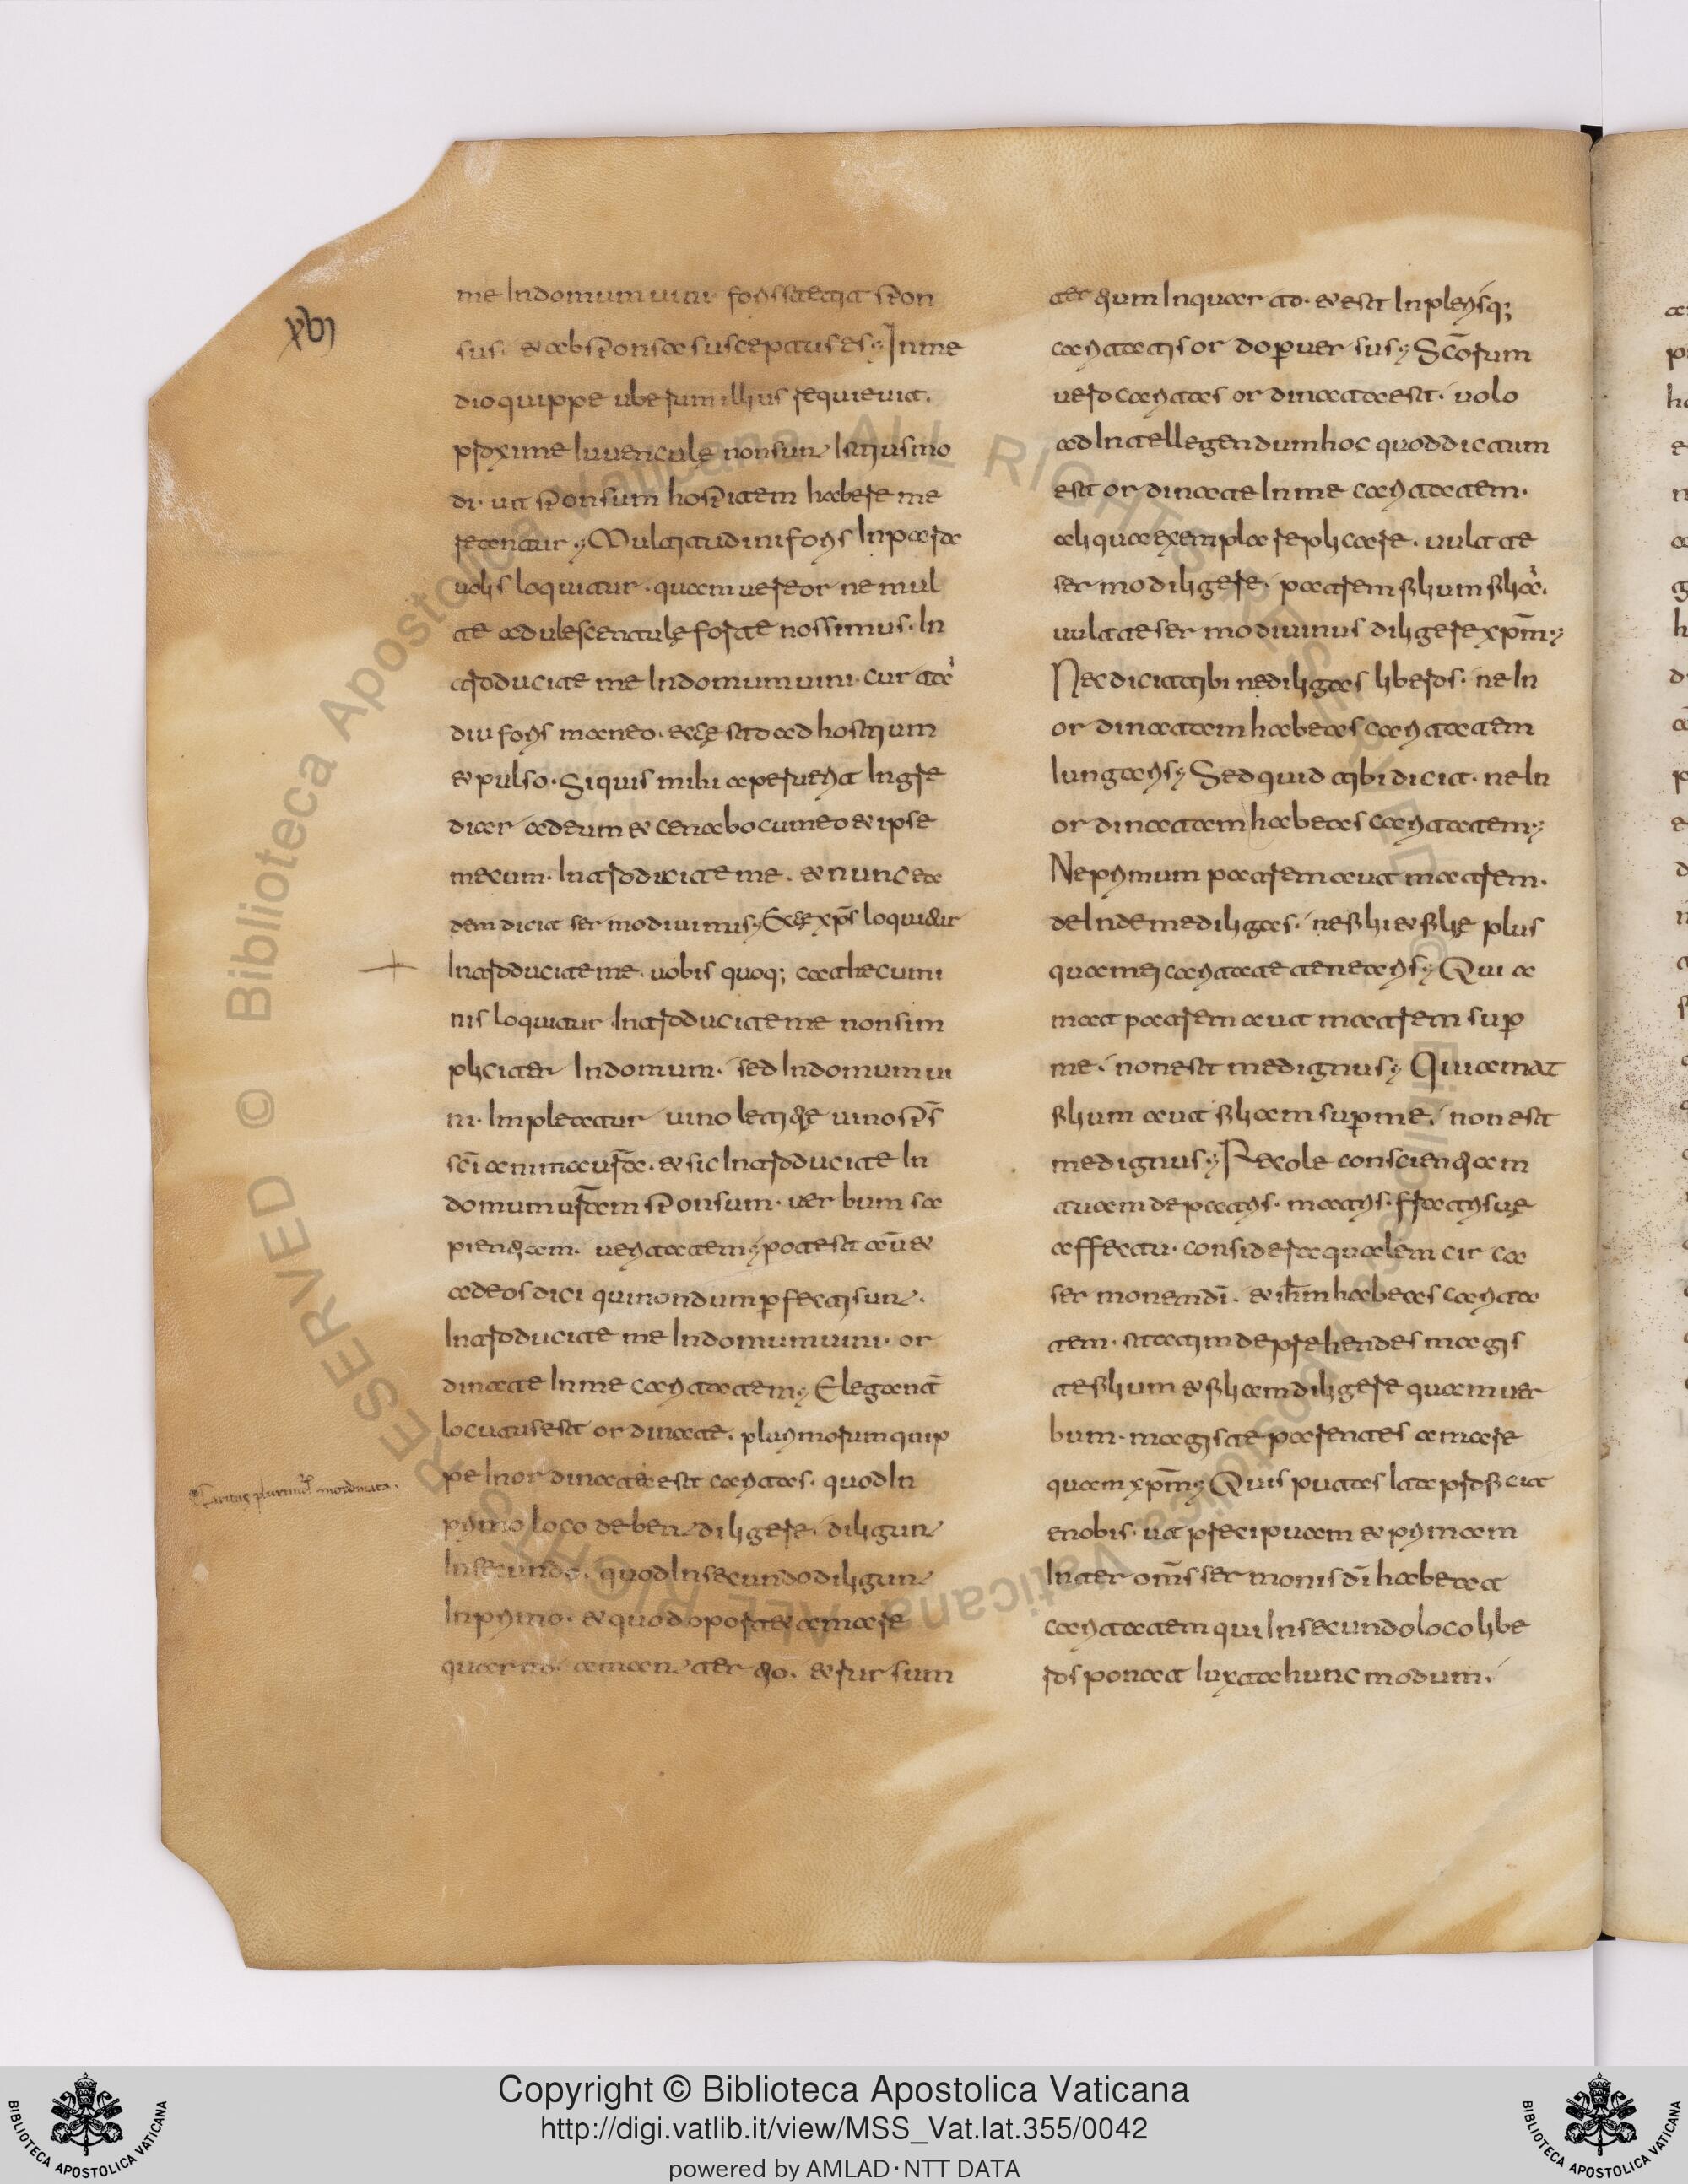 xvi
me Indomum uini. foris stetit spon
sus. & ab sponsa susceptus es; In me
dio quippe uberum illius requieuit.
proxime Iuuenculę non sunt Istiusmo
di. ut sponsum hospitem habere me
reantur; Multitudini foris Inpara
uolis loquitur. quam uereor ne mul
te adulescentulę forte nos simus. In
troducite me Indomum uini. cur ta
diu foris maneo. eccę sto ad hostium
& pulso. Siquis mihi aperuerit Ingre
diar ad eum & cenabo cum eo & ipse
mecum. Introducite me. & nunc ea
dem dicit sermo diuinus; Eccę xp̄s loquitur
Introducite me. uobis quoq; catecumi
nis loquitur Introducite me non sim
pliciter Indomum. sed Indomum ui
ni. Impleatur uino letitię uino sp̄s
sc̄i anima ur̄a. & sic Introducite In
domum ur̄am sponsum. uerbum sa
pientiam. ueritatem; potest aū &
ad eos dici qui nondum ꝑfecti sunt.
Introducite me Indomum uini. or
dinate Inme caritatem; Elegant̄
locutus est ordinate. plurimorum quip
pe Inordinata est caritas. quod In
primo loco debent diligere. diligunt
Insecundo. quod Insecundo diligunt
Inprimo. & quod oportet amare
quarto. amant tertio. & rursum
Caritas plurimoꝝ inordinata.
tertium Inquarto. & est Inplerisq;
caritatis ordo ꝑuersus; Sc̄orum
uero caritas ordinata est. uolo
ad Intellegendum hoc quod dictum
est ordinate Inme caritatem.
aliqua exempla replicare. uult te
sermo diligere. patrem filium filia.
uult te sermo diuinus diligere xp̄m;
Nec dicit tibi ne diligas liberos. ne In
ordinatam habeas caritatem
Iungaris; Sed quid tibi dicit. ne In
ordinatam habeas caritatem;
Ne primum patrem aut matrem.
deInde me diligas. ne filii & filię plus
quam mei caritate tenearis; Qui a
mat patrem aut matrem suꝑ
me. non est me dignus; Qui amat
filium aut filiam suꝑ me. non est
me dignus; Recole conscientiam
tuam de patris. matris. fratris uę
affectu. considera qualem circa
sermonem dī. & ih̄m habeas carita
tem. statim deprehendes magis
te filium & filiam diligere quam uer
bum. magis te parentes amare
quam xp̄m; Quis putas Ita proficit
e nobis. ut precipuam & primam
Inter om̄s sermonis dī habeat
caritatem qui Insecundo loco libe
ros ponat Iuxta hunc modum.
Copyright © Biblioteca Apostolica Vaticana
http://digi.vatlib.it/view/MSS_Vat.lat.355/0042
powered by AMLAD·NTT DATA
BIBLIOTECA APOSTOLICA VATICANA
BIBLIOTECA APOSTOLICA VATICANA